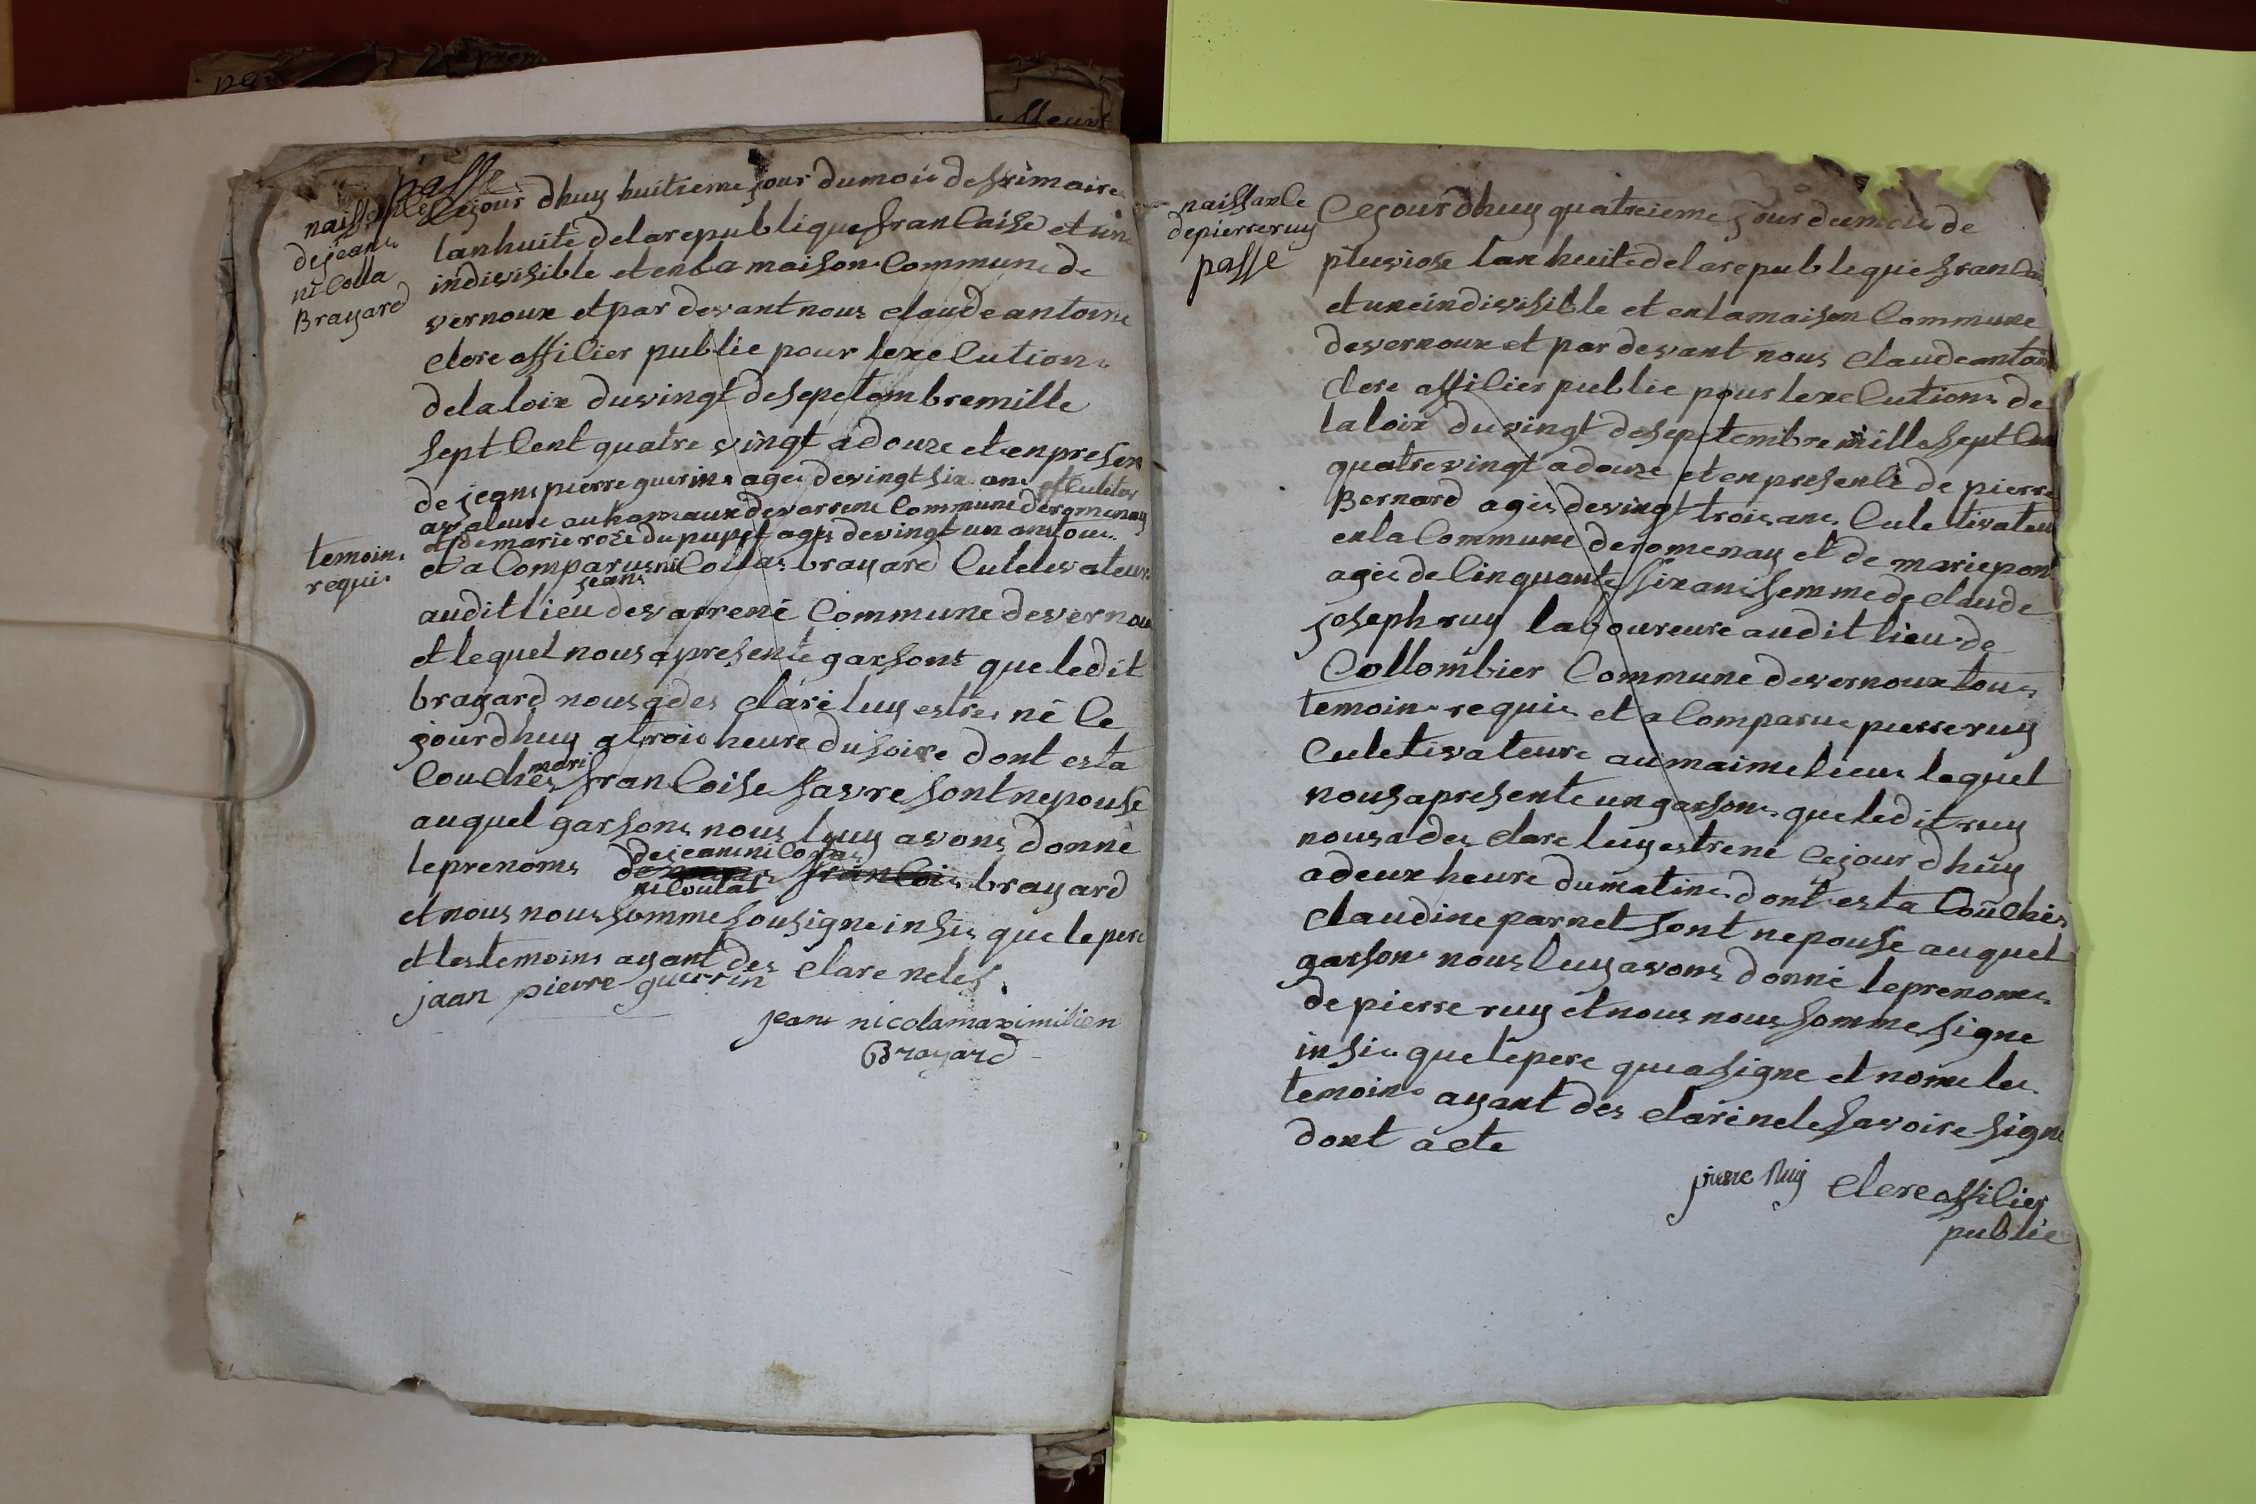 passe
naissance
de jean
nicolla
Brayard
Cejour dhuy huitieme jour du mois de frimaire
lan huite de la republique francaise et une
indivisible et en la maison Commune de
vernoux et par devant nous claude antoine
clere officier public pour lexecution
de la loix du vingt de sepetembre mille
sept Cent quatre vingt adouze et en presen
de jean pierre guerin agée de vingt six ans et Culetiv
avateure au hamaux de varrene Commune de romenay
et de marie roze du pupet agés de vingt un ans tous
temoins
requis
et a Comparus nicollas brayard Culetivateure
jean
audit lieu de varrené Commune de vernou
et lequel nous a presenté garsont que ledit
brayard nous a des claré luy estre né Ce
jourdhuy a trois heure du soire dont esta
Couchés mari francoise favre sont nepousé
auquel garsons nous luy avons donné
le prenoms de jean nicolas brayard
nicoulat
et nous nous somme sousigne insis que le pere
et les temoins ayant des clare neles
jaan pierre guerrin
jean nicola maximilien
Brayard
naissance
de pierre ruy
passe
Cejourdhuy quatreieme jour du mois de
pluviose lan huite de la republique francai
et une indivisible et en la maison Commune
de vernoux et par devant nous claude antoin
clere officier public pour lexecutions de
la loix du vingt de sepetembre mille sept Cen
quatre vingt adouze et en presence de pierre
Bernard agés de vingt trois ans Culetivateu
en la Commune de romenay et de marie pon
agée de Cinquante six ans femme de claude
joseph ruy laboureure audit lieu de
Collombier Commune de vernoux tous
temoins requis et a Comparue pierre ruy
Culetivateure au maime lieux lequel
nous a presente un garsons que ledit ruy
nous a des clare luy estre né Cejourdhuy
a deux heure du matine dont esta Couchés
claudine parnet sont nepouse auquel
garsons nous luy avons donné le prenoms
de pierre ruy et nous nous somme signe
insis que le pere qui a signe et nome les
temoins ayant des claré nele savoire signe
dont acte
pierre Ruy
clere officier
public